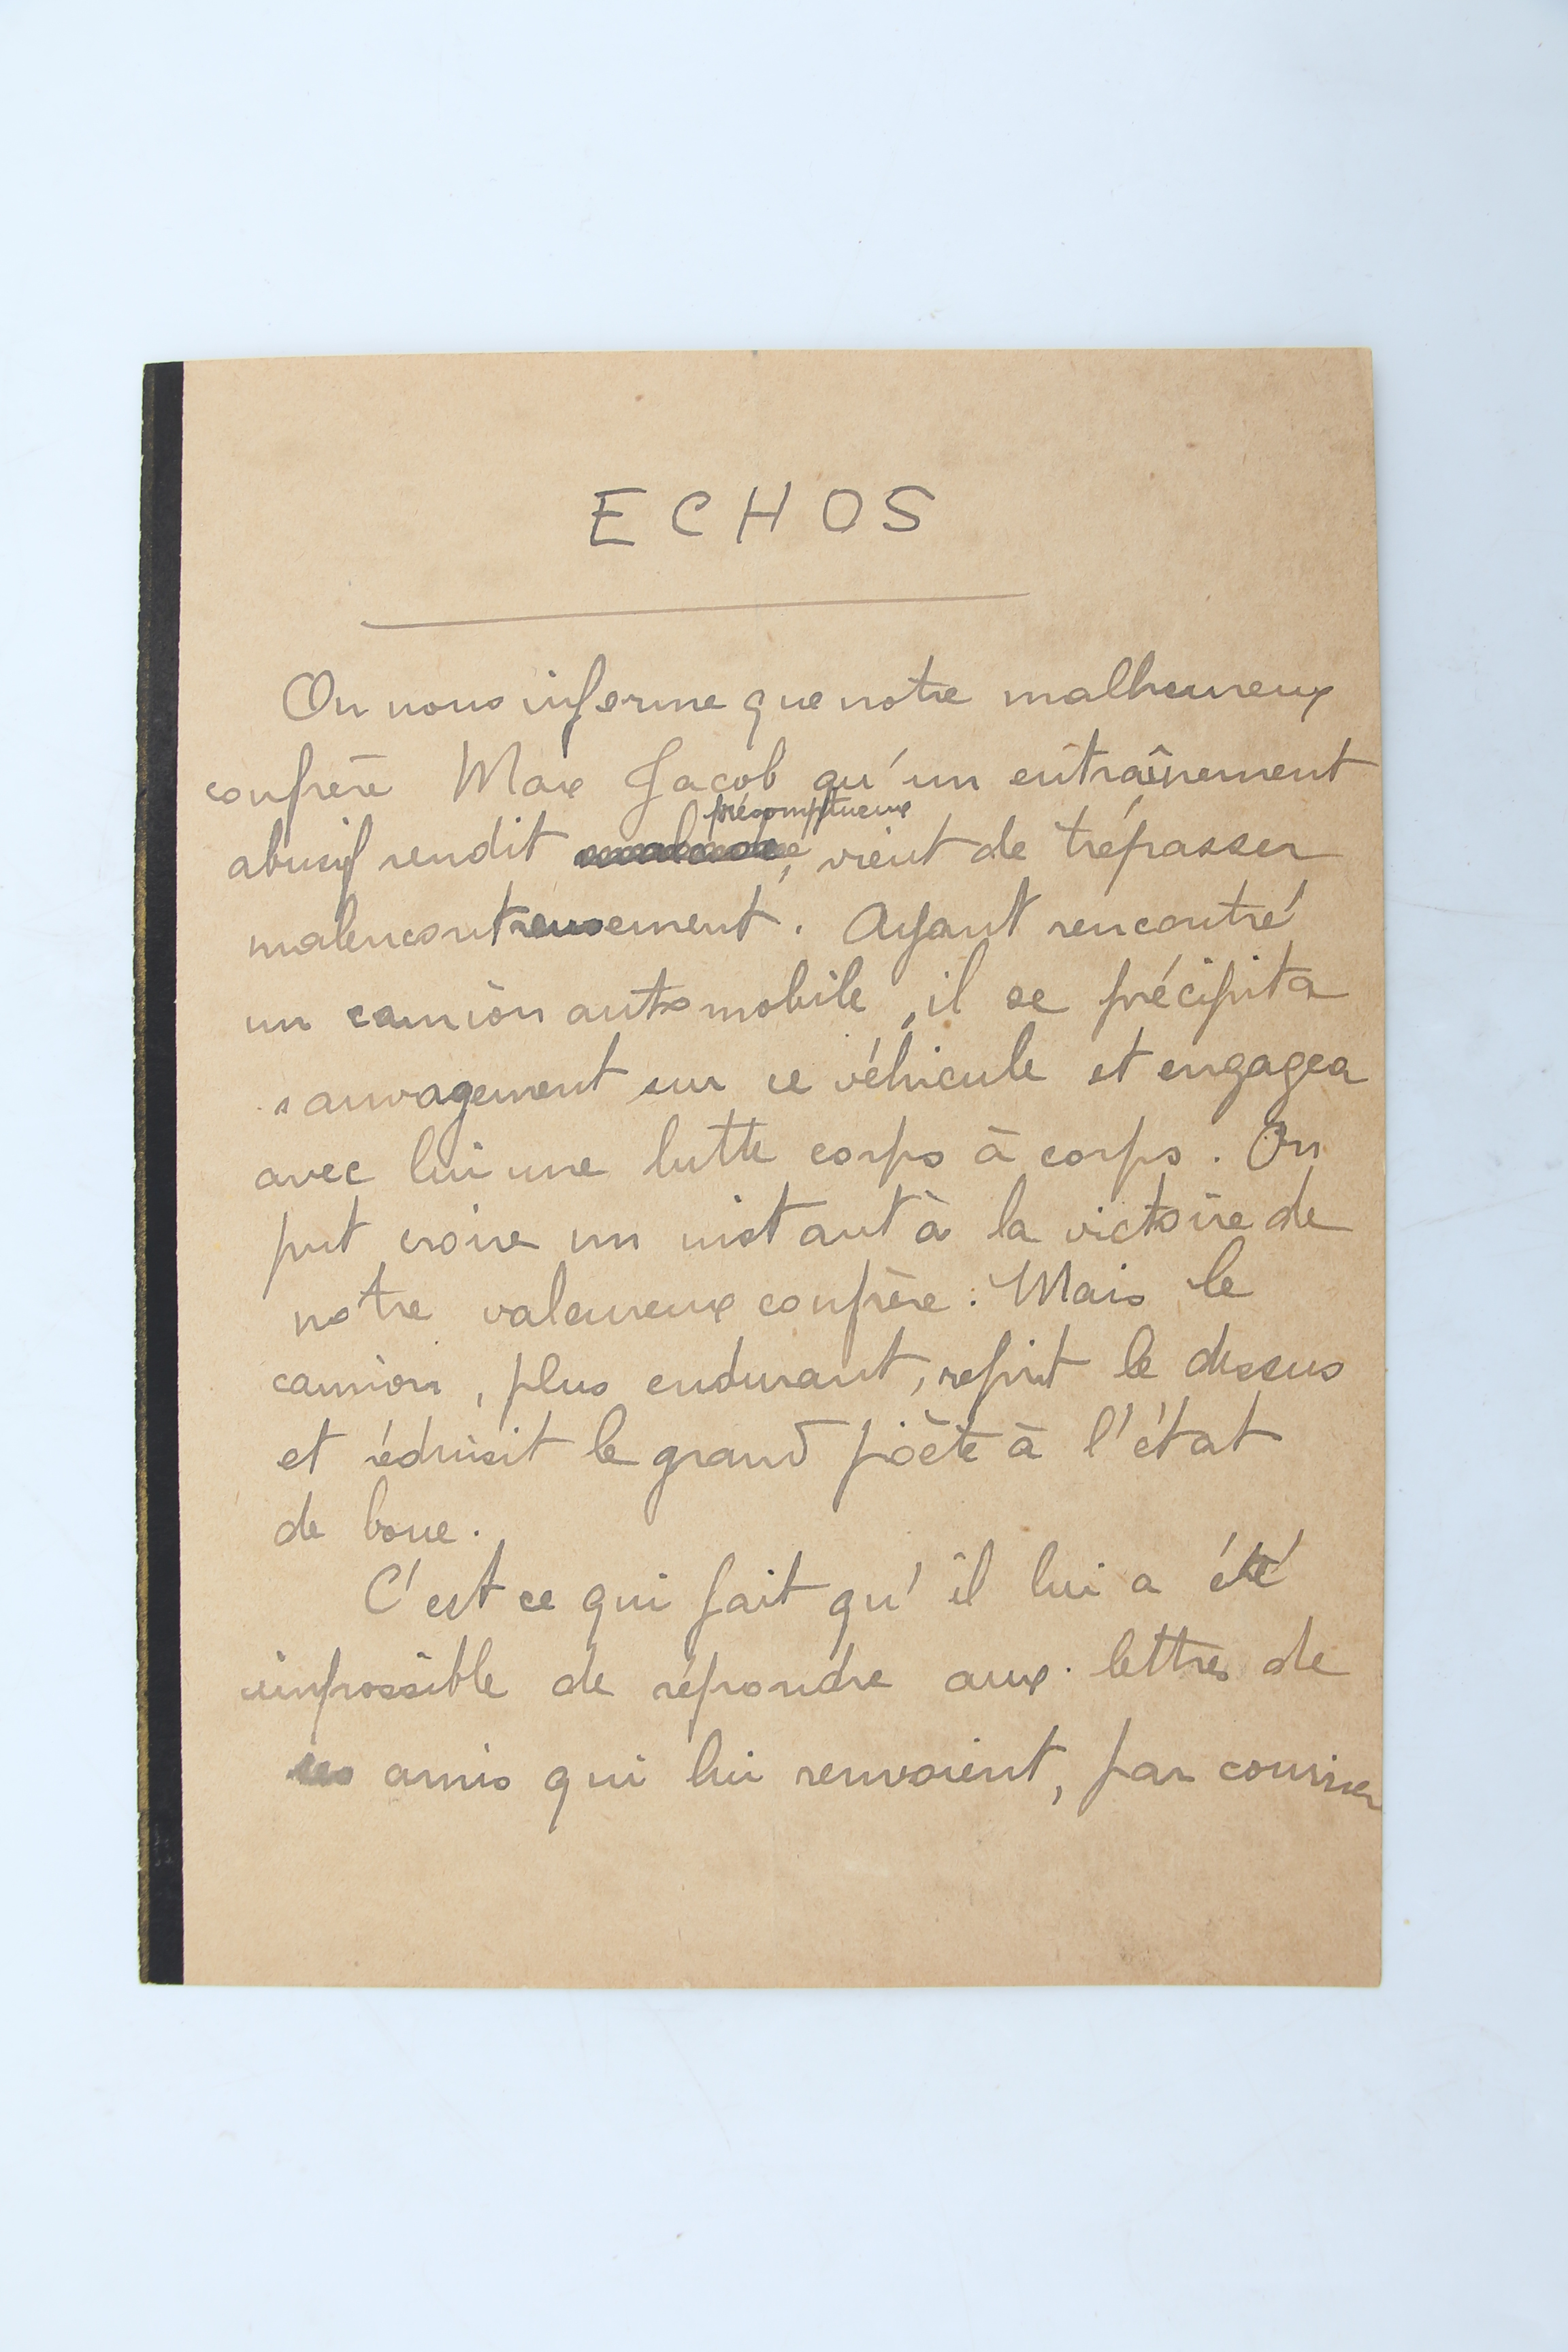 ECHOS
On nous informe que notre malheureux
confrère Max Jacob qu'un entraînement
présomptueux
abusif rendit , vient de trépasser
malencontreusement. Ayant rencontré
un camion automobile, il se précipita
sauvagement sur ce véhicule et engagea
avec lui une lutte corps à corps. On
put croire un instant à la victoire de
notre valeureux confrère. Mais le
camion, plus endurant, reprit le dessus
et réduisit le grand poète à l'état
de boue.
C'est ce qui fait qu'il lui a été
impossible de répondre aux lettres de
ses amis qui lui renvoient, par courrier